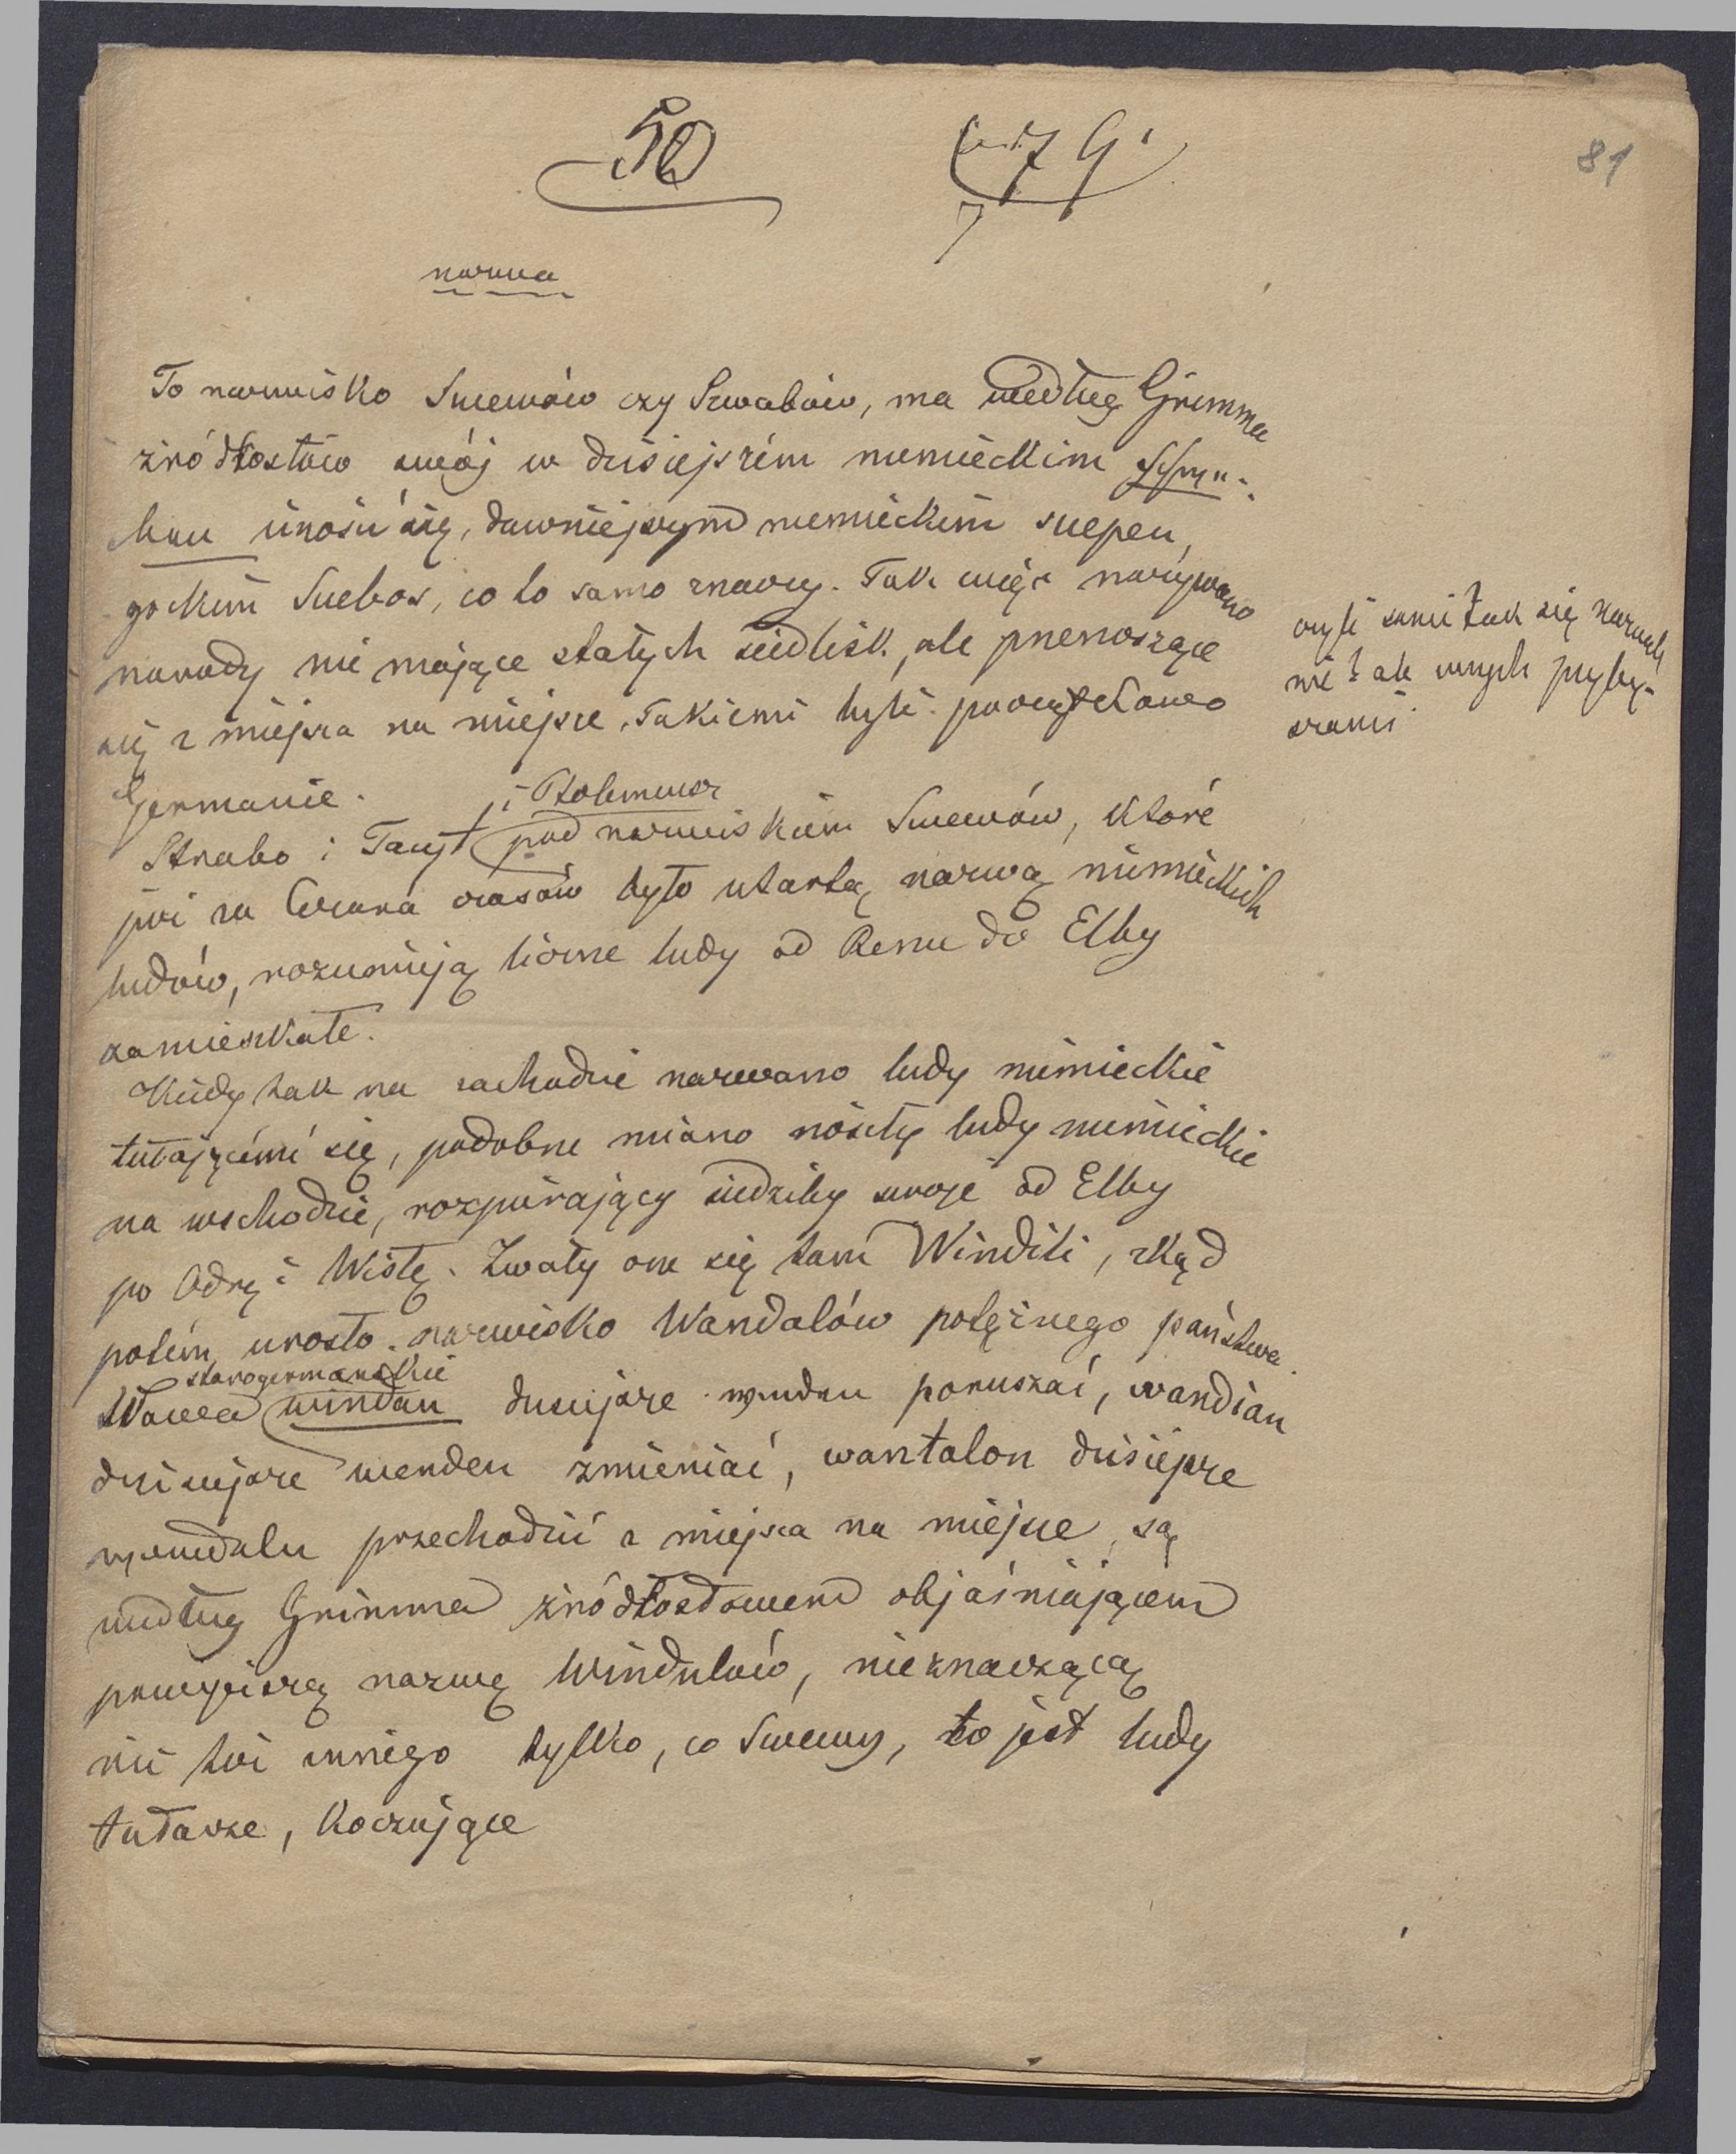 50
81
nazwa
To nazwisko Suewów czy Szwabów, ma według Grimma
źródłosłów swój w dzisiejszém niemieckim
unosić się, dawniejszym niemieckim suepen,
gockim Suebos, co to samo znaczy. Tak więc nazywano
narody nie mające stałych siedlisk, ale przenoszące
się z miejsca na miejsce. Takiemi byli początkowo
Germanie.
czyli sami tak się nazwali
nie tak innych przyby-
szami
i Ptolemeusz
Strabo i Tacyt pod nazwiskiem Suewów, które
już za Cezara czasów było utartą nazwą niemieckich
ludów, rozumieją liczne ludy od Renu do Elby
zamieszkałe.
Kiedy tak na zachodzie nazwano ludy niemieckie
tułającémi się, podobne miano nosiły ludy niemieckie
na wschodzie, rozpierający siedziby swoje od Elby
po Odrę i Wisłę. Zwały one się tam Windili, zkąd
potém urosło nazwisko Wandalów potężnego państwa.
starogermańskie
Słowa windan dzisiejsze winden poruszać, wandian
dzisiejsze wenden zmieniać, wantalon dzisiejsze
wandeln przechodzić z miejsca na miejsce, są
według Grimma źródłosłowem objaśniającem
powyższą nazwę Windulów, nieznaczącą
nic też innego tylko, co Suewy, to jest ludy
tułacze, koczujące